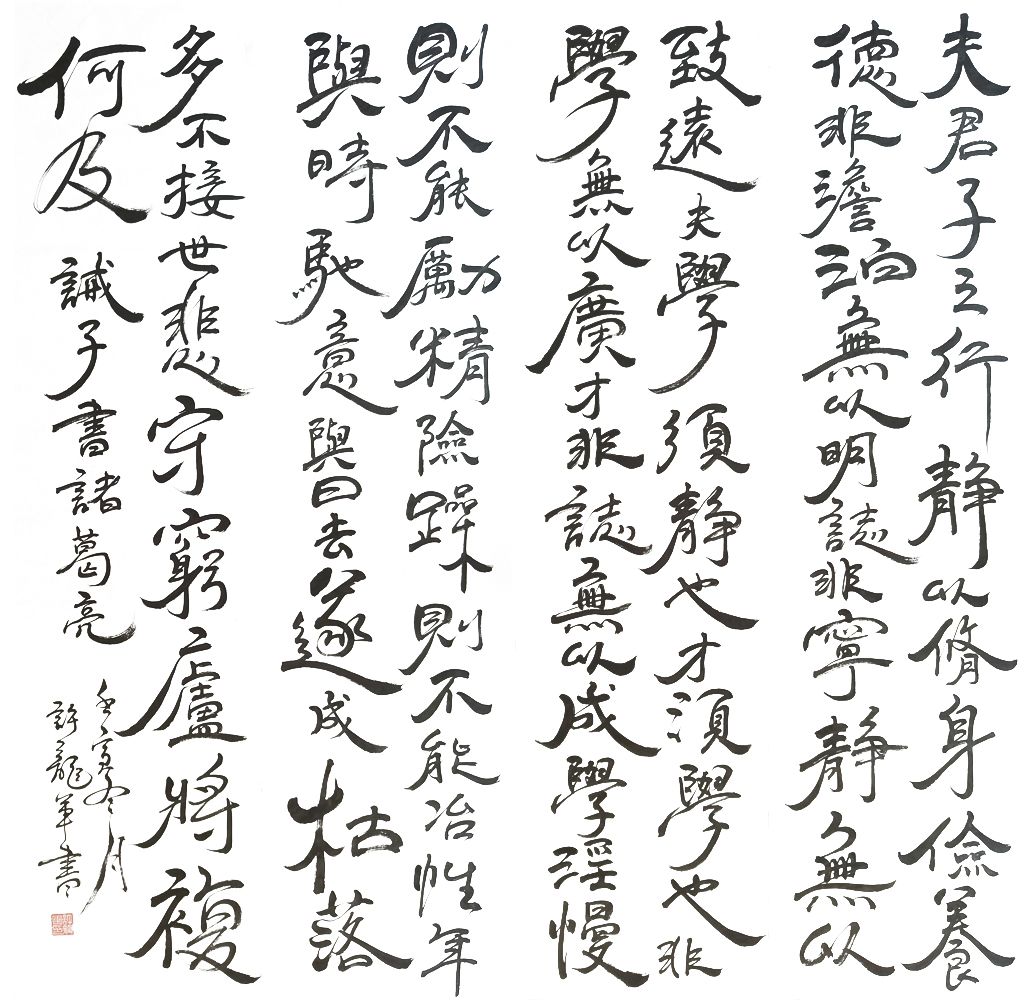 夫君子立行静以脩身儉養
德非澹泊無以明誌非寧静無以
致遠夫學須静也才須學也非
學無以廣才非誌無以成學滛慢
則不能勵精險躁則不能冶惟年
與時馳意與日去遂成枯落
多不接世悲守窮廬將複
何及 誡子書諸葛亮
壬寅冬月
許龍軍書